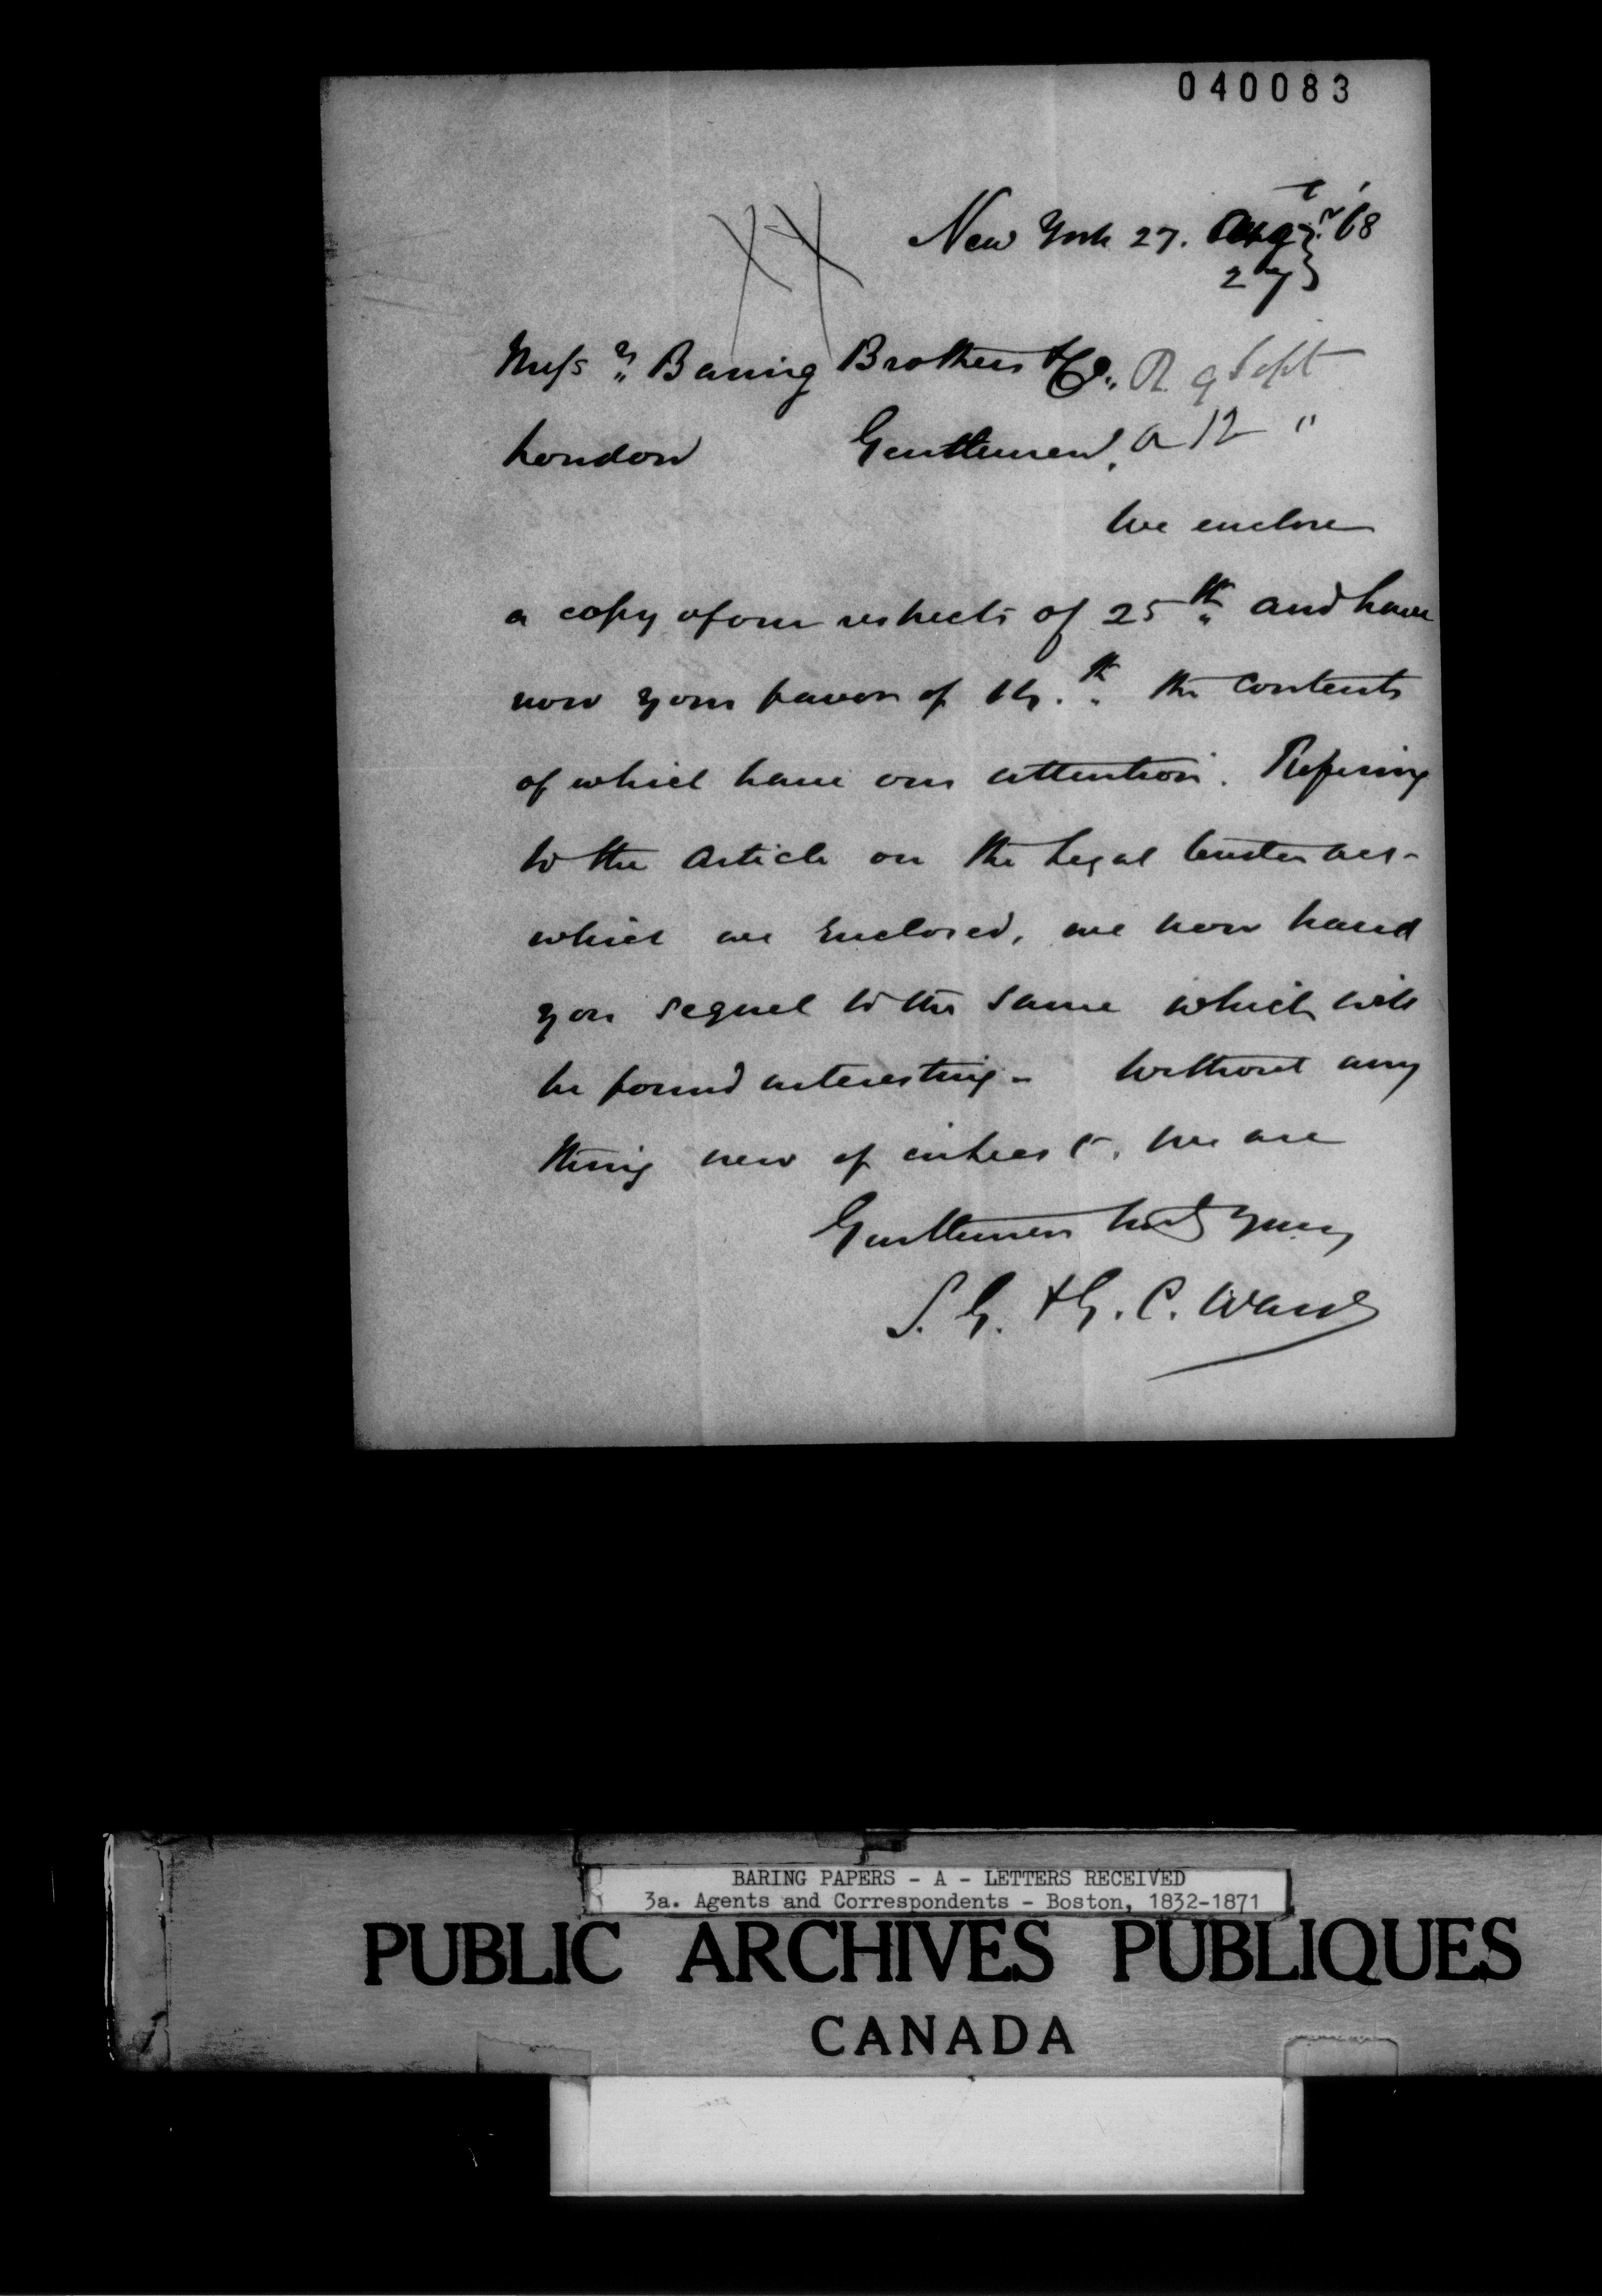 040083
New York 27. Augt '68
27
Messrs Baring Brothers & Co. R 9 Sept
London Gentlemen, a 12 "
We enclose
a copy of our respects of 25th and have
now your favor of 14.th the contents
of which have our attention. Refering
to the Article on the Legal tender act-
which we Enclosed, we now hand
you sequel to the same which will
be found interesting - Without any
thing new of interest, we are
Gentlemen yours
S. G. & G. C. Ward
BARING PAPERS - A - LETTERS RECEIVED
3a. Agents and Correspondents - Boston, 1832-1871
PUBLIC ARCHIVES PUBLIQUES
CANADA